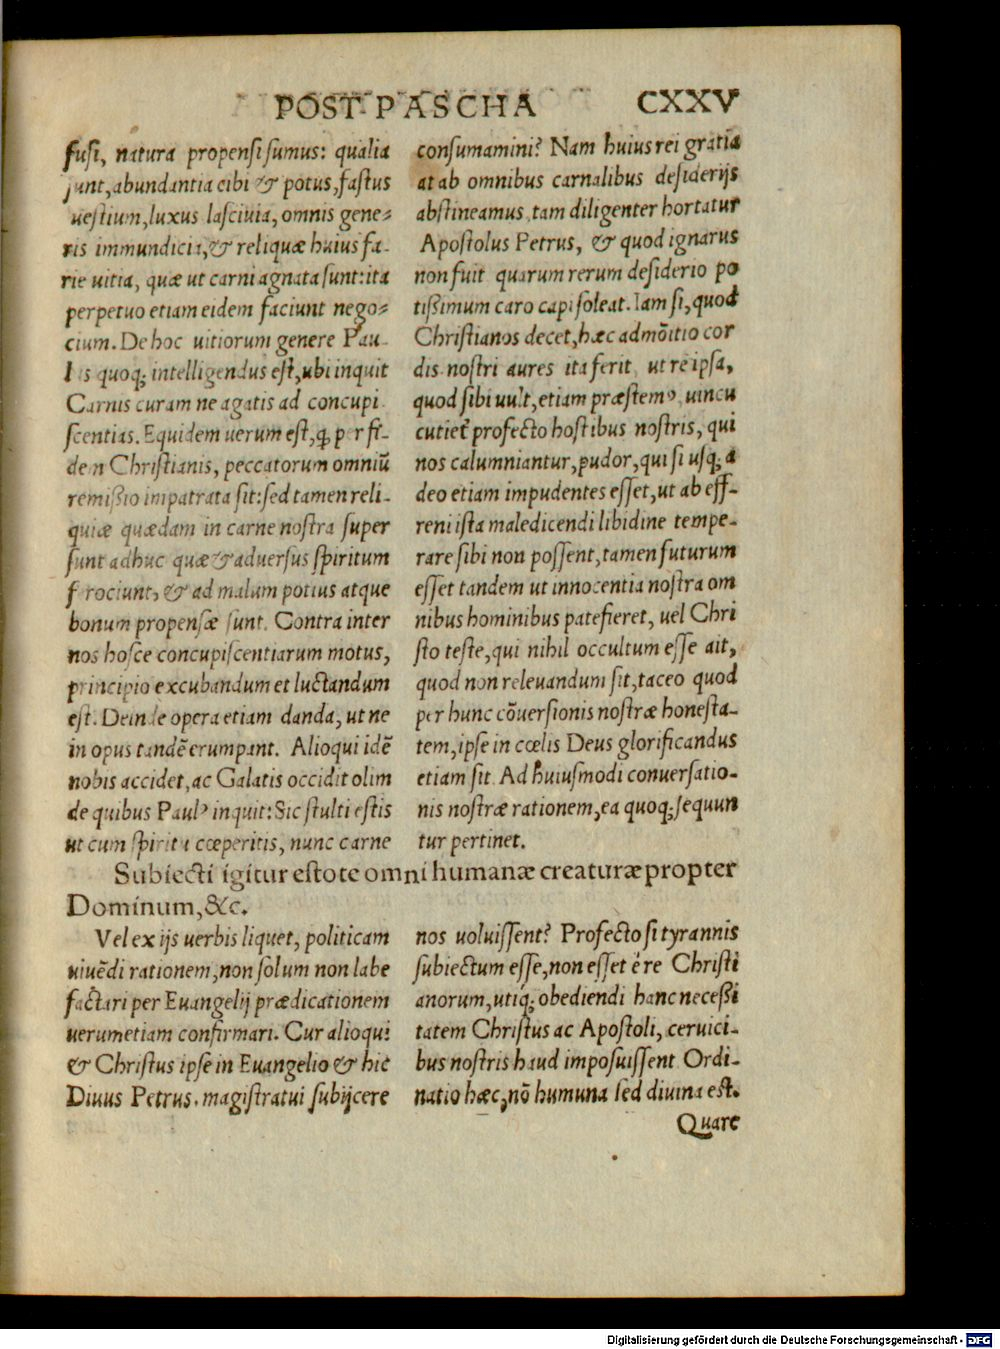 POST PASCHA CXXV
fusi, natura propensi sumus: qualia
sunt, abundantia cibi & potus, fastus
uestium, luxus lasciuia, omnis gene⸗
ris immundicia, & reliquæ huius fa-
rie uitia, quæ ut carni agnata sunt: ita
perpetuo etiam eidem faciunt nego⸗
cium. De hoc uitiorum genere Pau-
l s quoq; intelligendus est, ubi inquit
Carnis curam ne agatis ad concupi
scentias. Equidem uerum est, ꝙ p r fi-
de n Christianis, peccatorum omniũ
remißio impatrata sit: sed tamen reli-
quiæ quædam in carne nostra super
sunt adhuc quæ & aduersus spiritum
f rociunt, & ad malum potius atque
bonum propensæ sunt. Contra inter
nos hosce concupiscentiarum motus,
principio excubandum et luctandum
est. Deinde opera etiam danda, ut ne
in opus tandẽ erumpant. Alioqui idẽ
nobis accidet, ac Galatis occidit olim
de quibus Paulꝰ inquit: Sic stulti estis
ut cum spiritu cœperitis, nunc carne
consumamini? Nam huius rei gratia
at ab omnibus carnalibus desiderijs
abstineamus, tam diligenter hortatur
Apostolus Petrus, & quod ignarus
non fuit quarum rerum desiderio po
tißimum caro capi soleat. Iam si, quod
Christianos decet, hæc admõitio cor
dis nostri aures ita ferit, ut re ipsa,
quod sibi uult, etiam præstemꝰ, uincu
cutiet profecto hostibus nostris, qui
nos calumniantur, pudor, qui si usq; a
deo etiam impudentes esset, ut ab eff-
reni ista maledicendi libidine tempe-
rare sibi non possent, tamen futurum
esset tandem ut innocentia nostra om
nibus hominibus patefieret, uel Chri
sto teste, qui nihil occultum esse ait,
quod non releuandum sit, taceo quod
per hunc cõuersionis nostræ honesta-
tem, ipse in cœlis Deus glorificandus
etiam sit. Ad huiusmodi conuersatio-
nis nostræ rationem, ea quoq; sequun
tur pertinet.
Subiecti igitur estote omni humanæ creaturæ propter
Dominum, &c.
Vel ex ijs uerbis liquet, politicam
uiuẽdi rationem, non solum non labe
factari per Euangelij prædicationem
uerumetiam confirmari. Cur alioqui
& Christus ipse in Euangelio & hic
Diuus Petrus, magistratui subijcere
nos uoluissent? Profecto si tyrannis
subiectum esse, non esset ẽ re Christi
anorum, utiq; obediendi hanc neceßi
tatem Christus ac Apostoli, ceruici-
bus nostris haud imposuissent Ordi-
natio hæc, nõ humuna sed diuina est.
Quare
Digitalisierung gefördert durch die Deutsche Forschungsgemeinschaft - DFG